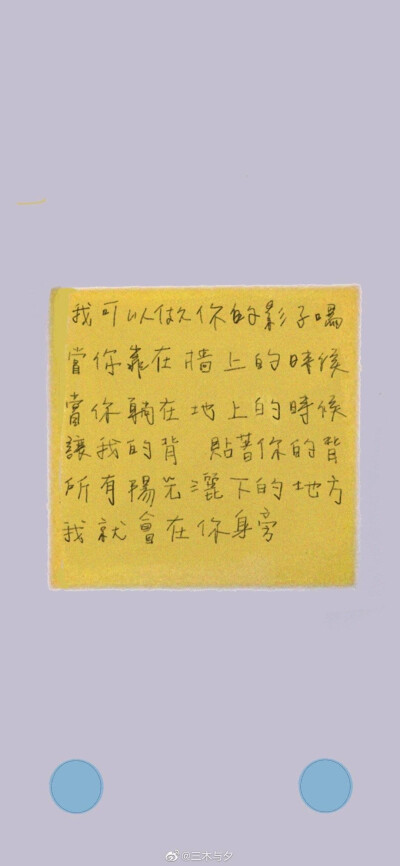 我可以做你的影子嗎
當你靠在牆上的時候
當你躺在地上的時候
讓我的背 貼著你的背
所有陽光灑下的地方
我就會在你身旁
@三木与夕